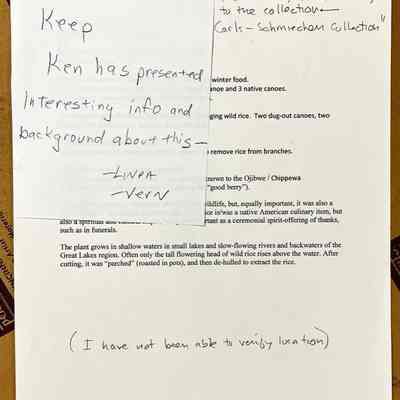 to the collection—
Carls-Schmiechen Collection"
Keep
Ken has presented
Interesting info and
background about this—
—LINEA
—VERN
winter food.
noe and 3 native canoes.
ging wild rice. Two dug-out canoes, two
remove rice from branches.
nown to the Ojibwe / Chippewa
"good berry").
ldlife, but, equally important, it was also a
ice is/was a native American culinary item, but
also a spiritual and rtant as a ceremonial spirit-offering of thanks,
such as in funerals.
The plant grows in shallow waters in small lakes and slow-flowing rivers and backwaters of the
Great Lakes region. Often only the tall flowering head of wild rice rises above the water. After
cutting, it was "parched" (roasted in pots), and then de-hulled to extract the rice.
(I have not been able to verify location)